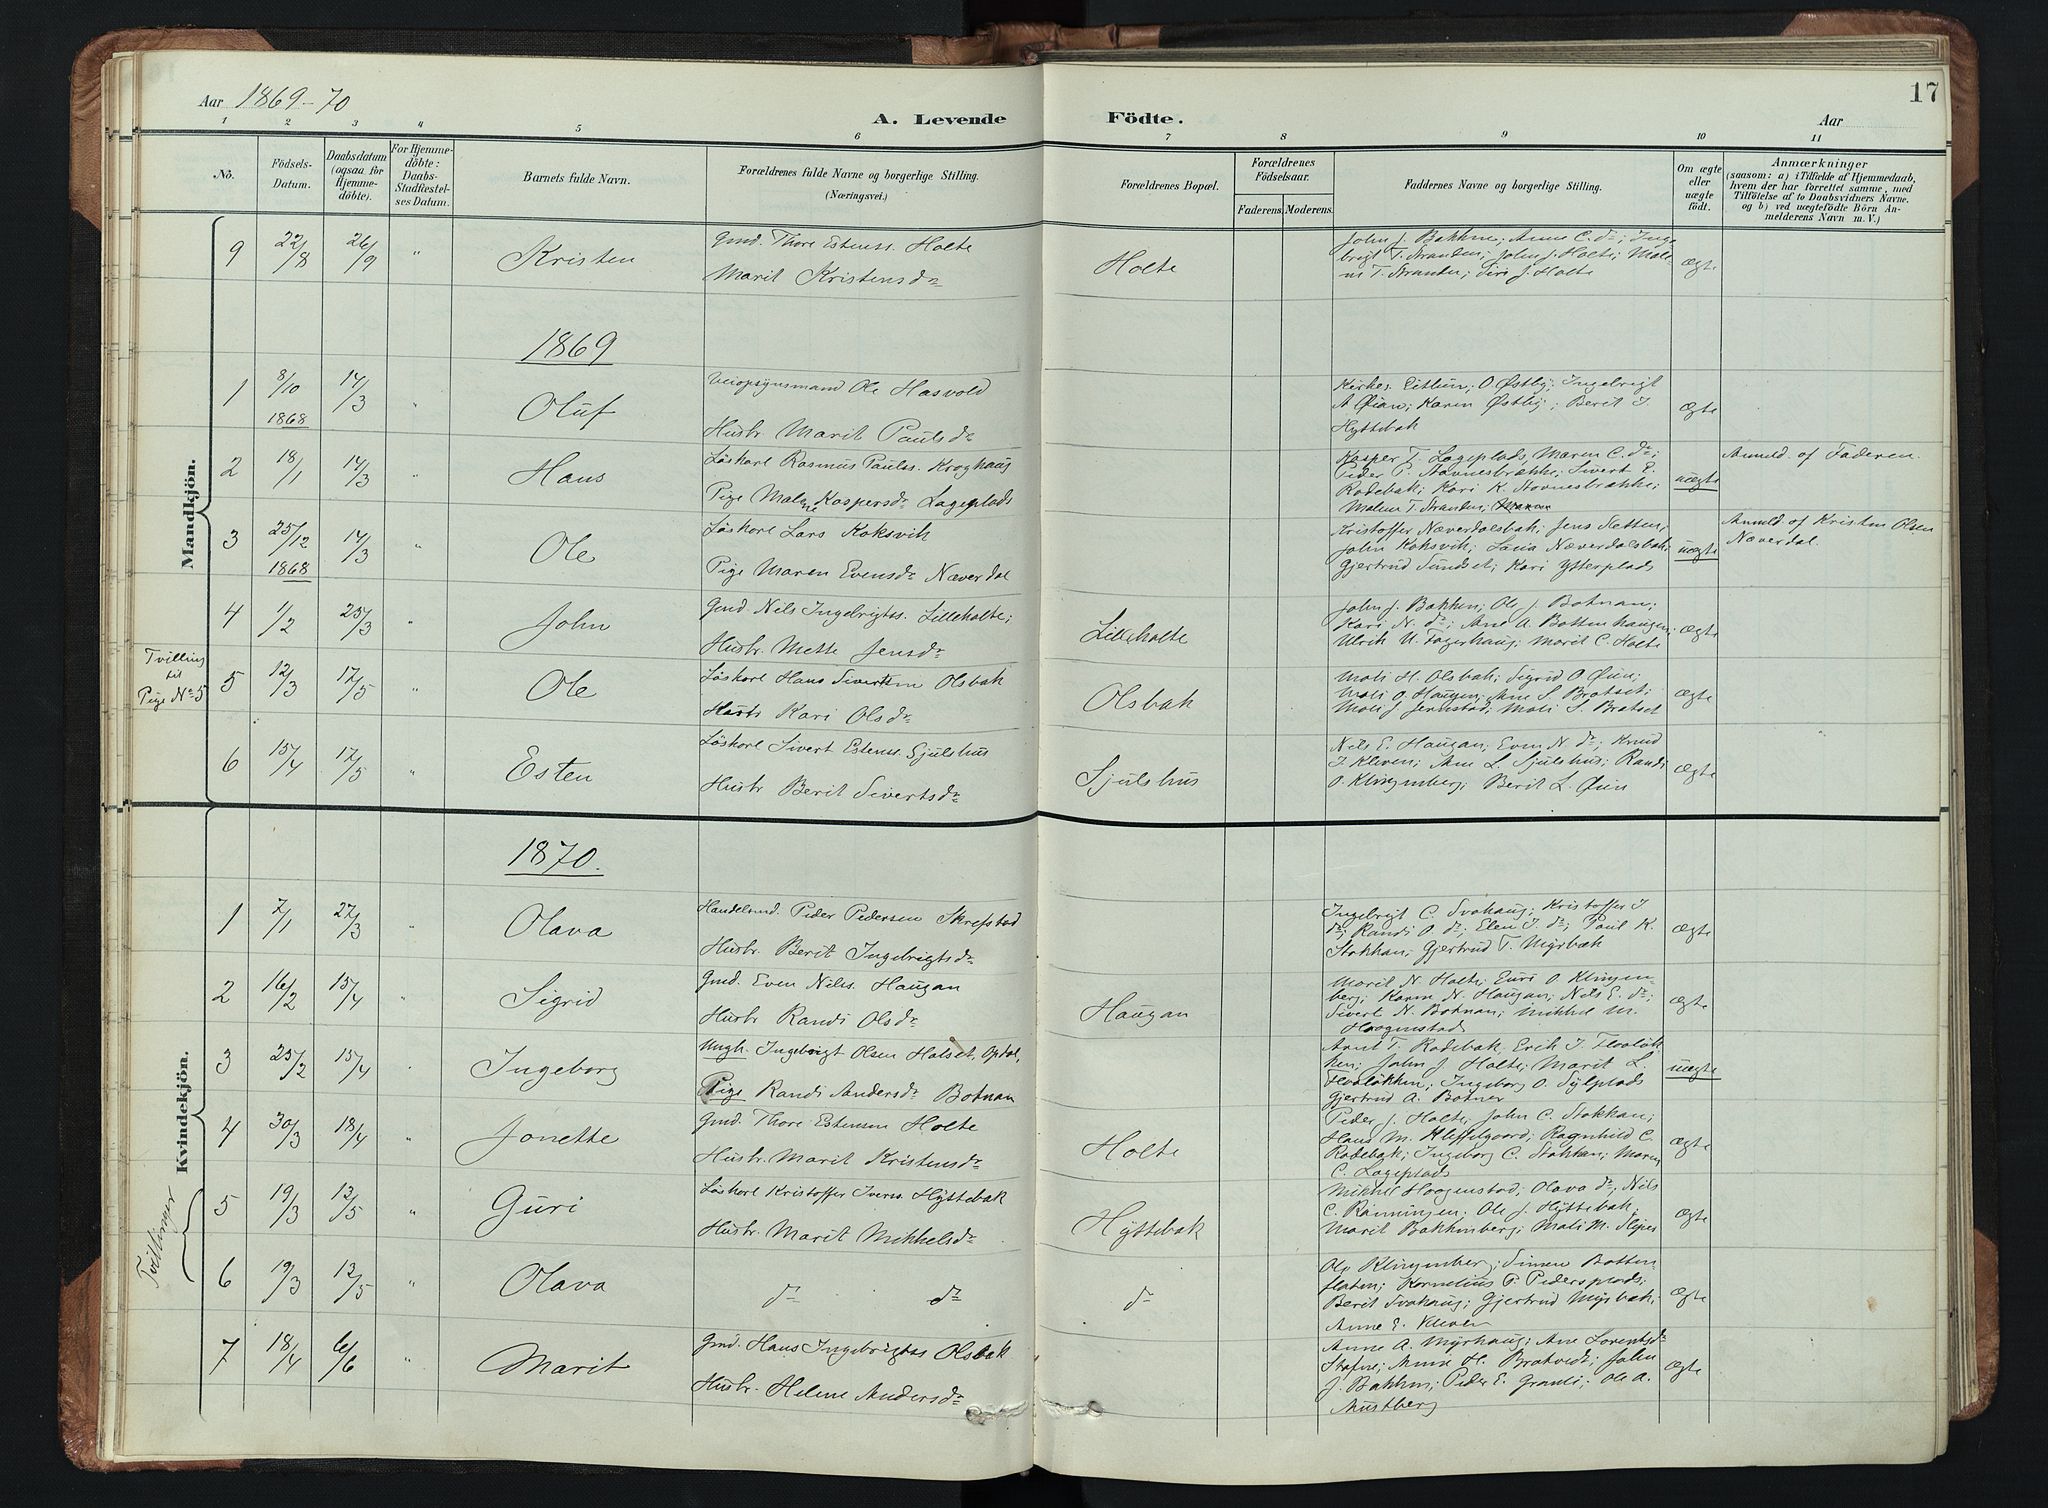 Aar 1869-70
17
A. Levende Födte.
Aar
1 2 3 4 5 6 7 8 9 10 11
No.
Födsels-Datum.
Daabsdatum (ogsaa for Hjemmedöbte).
For Hjemmedöbte: Daabs-Stadfestelses Datum.
Barnets fulde Navn.
Forældrenes fulde Navne og borgerlige Stilling.
(Næringsvei.)
Forældrenes Bopæl.
Forældrenes Födselsaar.
Faderens. Moderens.
Faddernes Navne og borgerlige Stilling.
Om ægte eller uægte födt.
Anmærkninger
(saasom: a) i Tilfælde af Hjemmedaab, hvem der har forrettet samme, med Tilföielse af to Daabsvidners Navne, og b) ved uægtefödte Börn Anmelderens Navn m. V.)
Mandkjön.
9 22/8 26/9 " Kristen
Gmd. Thore Estens. Holte
Marit Kristensdr
Holte
John J. Bakken; Anne C. dr; Inge-
brigt T. Stranden; John J. Holte; Male-
ne T. Stranden; Siri J. Holte
ægte
1869
1 8/10 1868 14/3 " Oluf
Veiopsynsmand Ole Hasvold
Hustr. Marit Paulsdr
Kirkes. Eithun; O. Østby; Ingebrigt
A Øian; Karen Østby; Berit J.
Hyttebak
ægte
2 18/1 14/3 " Hans
Løskarl Rasmus Pauls. Kroghaug
Pige Malene Kaspersdr Lageplads
Kasper T. Lageplads, Maren C. dr;
Peder P. Stavnesbrække; Sivert E.
Rodebak; Kari K. Stavnesbrække;
Malene T. Stranden;
uægte
Anmeld. af Faderen.
3 25/12 1868 14/3 " Ole
Løskarl Lars Koksvik
Pige Maren Evensdr Næverdal
Kristoffer Næverdalsbak; Jens Sletten;
John Koksvik; Laria Næverdalsbak;
Gjertrud Sundset; Kari Ytterplads
uægte
Anmeld af Kristen Olsen
Næverdal.
4 1/2 25/3 " John
Gmd. Nels Ingebrigts. Lilleholte;
Hustr. Mette Jensdr
Lilleholte
John J. Bakken; Ole J. Botnan;
Kari N. dr; Ane A. Bottenhaugen;
Ulrik U. Fagerhaug; Marit C. Holte
ægte
Tvilling
til
Pige No 5
5 12/3 17/5 " Ole
Løskarl Hans Sivertsen Olsbak
Hustr Kari Olsdr
Olsbak
Mali H. Olsbak; Sigrid O Øien;
Mali O. Haugen; Ane S. Bratset;
Mali J. Jernstad; Mali S. Bratset
ægte
6 15/4 17/5 " Esten
Løskarl Sivert Estens. Sjulshus
Hustr Berit Sivertsdr
Sjulshus
Nels E. Haugan; Even N. dr; Knud
I Kleven; Ane L. Sjulshus; Randi
O. Klingenberg; Berit L. Øien
ægte
Kvindekjön.
1870.
1 7/1 27/3 " Olava
Handelsmd. Peder Pedersen Skrefstad
Hustr. Berit Ingebrigtsdr
Ingebrigt C. Svahaug; Kristoffer I
dr; Randi O. dr; Elen I. dr; Paul K.
Stokkan; Gjertrud T. Myrbæk
ægte
2 16/2 15/4 " Sigrid
Gmd. Even Nils. Haugan
Hustr Randi Olsdr
Haugan
Marit N. Holte; Guri O. Klingen-
berg; Karen N. Haugan; Nels E. dr;
Sivert N. Botnan; Mikkel M.
Haagenstad
ægte
3 25/2 15/4 Ingeborg
Ungk. Ingebrigt Olsen Halset, Opdal,
Pige Randi Andersdr Botnan
Arnt T. Rodebak. Erik I. Hvaløk-
ken; John J Holte; Marit L.
Hvaløkken; Ingeborg O. Sylplads
Gjertrud A. Botner
uægte
4 30/3 18/4 " Jonette
Gmd. Thore Estensen Holte
Hustr. Marit Kristensdr
Holte
Peder J. Holte; John C. Stokkan;
Hans M. Kleffelgaard; Ragnhild C.
Rodebak; Ingeborg C. Stokkan; Maren
C. Lageplads
ægte
Tvillinger
5 19/3 12/5 " Guri
Løskarl Kristoffer Ivers. Hyttebak
Hustr. Marit Mikkelsdr
Hyttebak
Mikkel Haagenstad; Olava dr, Nils
C. Rønningen; Ole J. Hyttebak;
Marit Bakkenberg; Mali M. Slipes
ægte
6 19/3 12/5 " Olava
dr dr
dr
Ole Klingenberg; Simen Botten
flaten; Kornelius P. Pedersplads;
Berit Svahaug; Gjertrud Myrbæk;
Anne E. Kleven
ægte
7 18/4 6/6 " Marit
Gmd. Hans Ingebrigts Olsbak
Hustr. Helene Andersdr
Anne A. Myrhaug; Ane Lorentsdr
Stafne; Anne H. Bratvedt; John
J. Bakken; Peder E. Granli; Ole A.
Mustberg
ægte